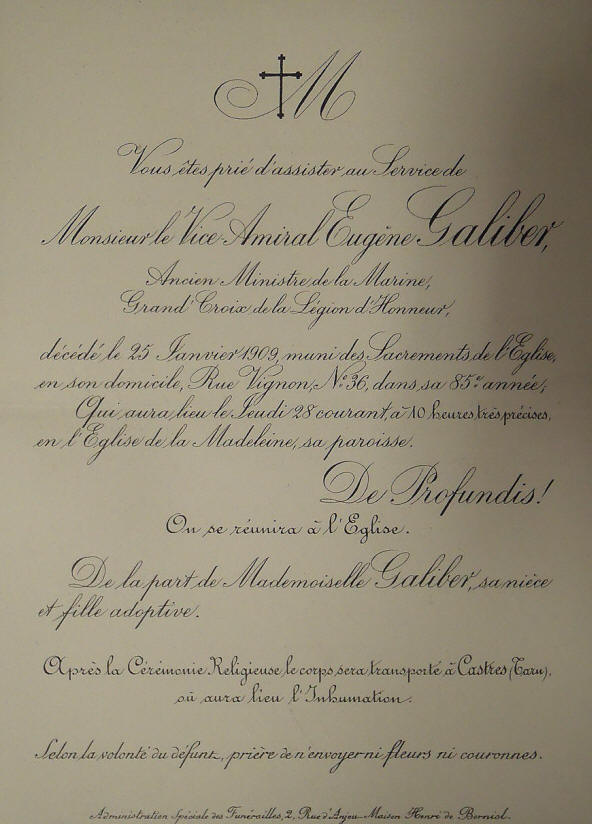 M
Vous êtes prié d'assister au Service de
Monsieur le Vice-Amiral Eugène Galiber,
Ancien Ministre de la Marine,
Grand' Croix de la Légion d'Honneur,
décédé le 25 Janvier 1909, muni des Sacrements de l'Eglise,
en son domicile, Rue Vignon, Nº 36, dans sa 85e année;
Qui aura lieu le Jeudi 28 courant, à 10 heures très précises,
en l'Eglise de la Madeleine, sa paroisse.
De Profundis!
On se réunira à l'Eglise.
De la part de Mademoiselle Galiber, sa nièce
et fille adoptive.
Après la Cérémonie Religieuse le corps sera transporté à Castres (Tarn),
où aura lieu l'Inhumation.
Selon la volonté du défunt, prière de n'envoyer ni fleurs ni couronnes.
Administration Spéciale des Funérailles, 2, Rue d'Anjou - Maison Henri de Borniol.